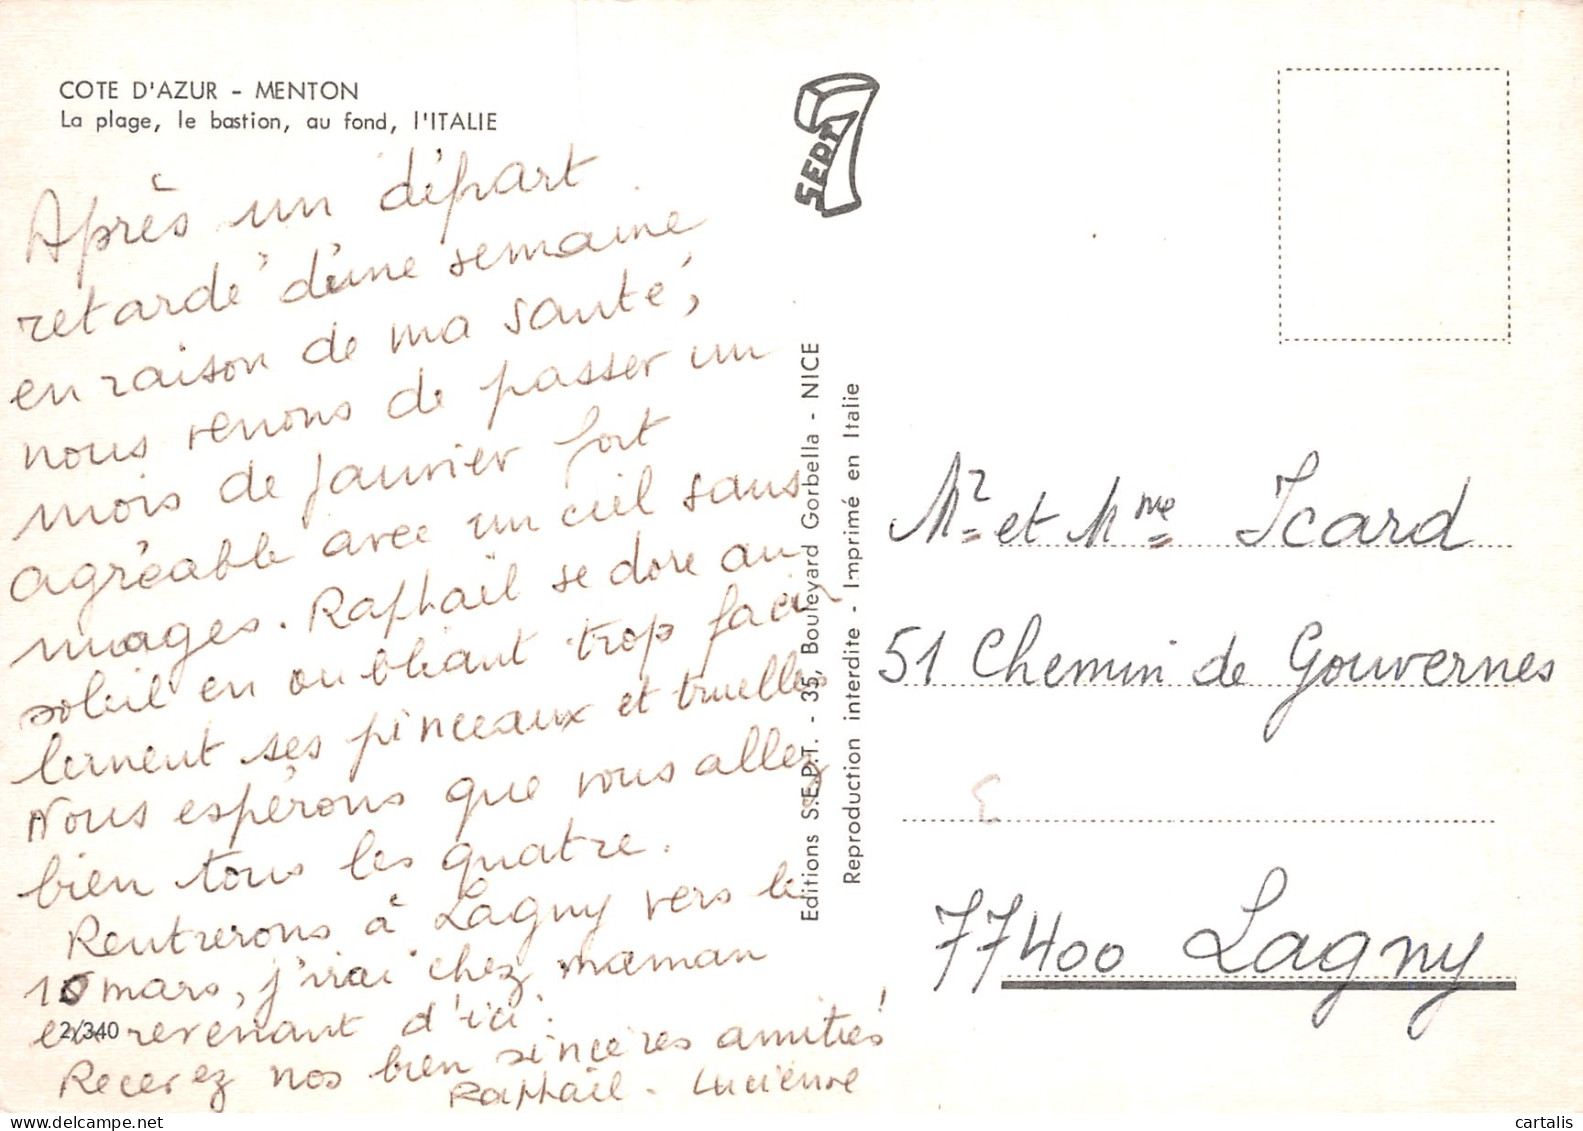 COTE D'AZUR - MENTON
La plage, le bastion, au fond, l'ITALIE
Après un départ
retardé d'une semaine
en raison de ma santé,
nous venons de passer un
mois de janvier fort
agréable avec un ciel sans
nuages. Raphaël se dore au
soleil en oubliant trop facil
lement ses pinceaux et truelles
Nous espérons que vous allez
bien tous les quatre.
Rentrerons à Lagny vers le
10 mars, j'irai chez maman
en revenant d'ici.
2/340
Recevez nos bien sincères amitiés
Raphaël - Lucienne
SEPT
7
Editions S.E.P.T. - 35, Boulevard Gorbella - NICE
Reproduction interdite - Imprimé en Italie
Mr et Mme Icard
51 Chemin de Gouvernes
77400 Lagny
cartalis